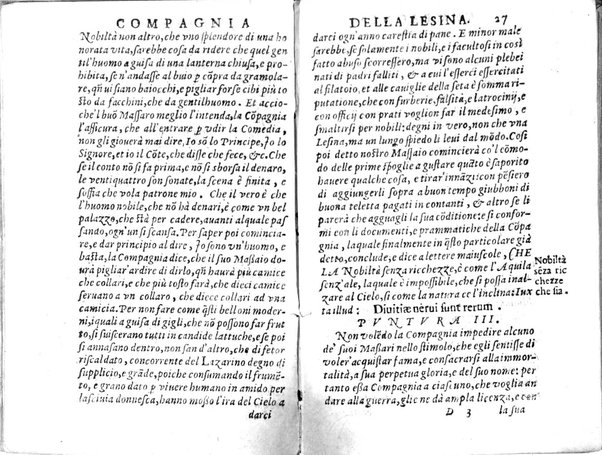 COMPAGNIA
Nobiltà non altro, che vno splendore di una ho
norata vita, sarebbe cosa da ridere che quel gen
til'huomo a guisa di una lanterna chiusa, e pro-
hibita, se n'andasse al buio p cõpra da gramola-
re, qñ ui siano baiocchi, e pigliar forse cibi più to
sto da facchini, che da gentilhuomo. Et accio-
che l'buõ Massaro meglio l'intenda, la Cõpagnia
l'assicura, che all'entrare p vdir la Comedia,
non gli giouerà mai dire, Io sõ lo Principe, Io lo
Signore, et io il Cõte, che disse che fece, &c. Che
se il conto nõ si fa prima, e nõ si sborsa il denaro,
le ventiquattro son sonate, la scena è finita, e
soffia che vola patrone mio. Che il vero è che
l'huomo nobile, che nõ hà denari, è come vn bel
palazzo, che stà per cadere, auanti alquale pas
sando, ogn'un si scansa. Per saper poi comincia-
re, e dar principio al dire, Io sono vn'huomo, e
basta, la Compagnia dice, che il suo Massaio do-
urà pigliar'ardire di dirlo, qñ haurà più camice
che collari, e che più tosto farà, che dieci camice
seruano a vn collaro, che diece collari ad vna
camicia. Per non fare come q̃lli belloni moder-
ni, iquali a guisa di gigli, che nõ possono far frut
to, si suiscerano tutti in candide lattuche, se si poi
si annasano dentro, non san d'altro, che di fetor
riscaldato, concorrente del Lazarino degno di
supplicio, e grãde, poiche consumando il frumẽ-
to, e grano dato p vivere humano in amido per
lasciuia donnesca, hanno mosso l'ira del Cielo a
darci
DELLA LESINA. 27
darci ogn'anno carestia di pane. E minor male
sarebbe, se solamente i nobili, e i facultosi in così
fatto abuso scorressero, ma vi sono alcuni plebei
nati di padri falliti, & a cui l'esserci essercitati
al filatoio, et alle cauiglie della seta è somma ri-
putatione, che con furberie, falsità, e latrocinij, e
con officij con prati voglion far il medesimo, e
smaltirsi per nobili: degni in vero, non che vna
Lesina, ma un lungo spiedo li leui dal mõdo. Cosi
poi detto nostro Massaio comincierà co'l cõmo-
do delle prime spoglie a gustare quãto è saporito
hauere qualche cosa, e tirar'innãzi: con pẽsiero
di aggiungerli sopra a buon tempo giubboni di
buona teletta pagati in contanti, & altro se li
parerà che agguagli la sua cõditione: et si confor-
mi con gli ordini, e prammatiche della Cõpa
gnia, laquale finalmente in q̃sto particolare già
detto, conclude, e dice a lettere maiuscole, CHE
LA Nobiltà senza ricchezze, è come l'Aquila
senz'ale, laquale è impossibile, che si possa inal-
zare al Cielo, si come la natura ce l'inclina: Iux
ta illud: Diuitiæ nerui sunt rerum.
Nobiltà
sẽza ric
chezze
che sia.
PVNTVRA III.
Non volẽdo la Compagnia impedire alcuno
de' suoi Massari nello stimolo, che egli sentisse di
voler'acquistar fama, e consacrarsi alla immor-
talità, a sua perpetua gloria, e del suo nome: per
tanto essa Compagnia a ciascuno, che voglia an
dare alla guerra, gli ne dà ampla licenza, e con
D 3 la sua